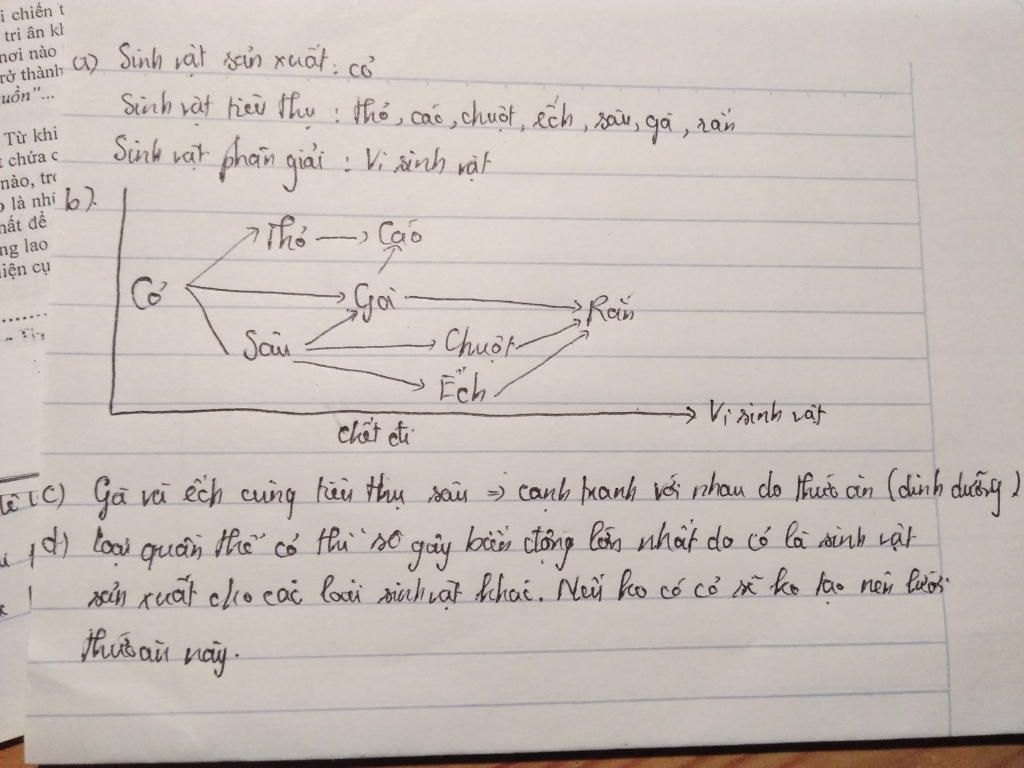 i chiến t
tri ân kh
nơi nào
rở thành
uồn"...
Từ khi
t chứa c
nào, trc
o là nhí
hất để
ng lao
iện cụ
a) Sinh vật sản xuất: cỏ
Sinh vật tiêu thụ: thỏ, cáo, chuột, ếch, sâu, gà, rắn
Sinh vật phân giải: Vi sinh vật
b).
Thỏ → Cáo
Cỏ Gà Rắn
Sâu Chuột
Ếch
Vi sinh vật
chết đi
c) Gà và ếch cùng tiêu thụ sâu => cạnh tranh với nhau do thức ăn (dinh dưỡng)
d) loại quần thể cỏ thì sẽ gây biến động lớn nhất do cỏ là sinh vật
sản xuất cho các loài sinh vật khác. Nếu ko có cỏ sẽ ko tạo nên lưới
thức ăn này.